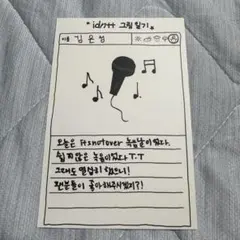 * id/++ 그림 일기 *
이름 김은성
오늘은 Hangover 녹음날이었다.
쉽지않은 녹음이었다 T.T
그래도 열심히 했으니!
팬분들이 좋아해주시겠지?!